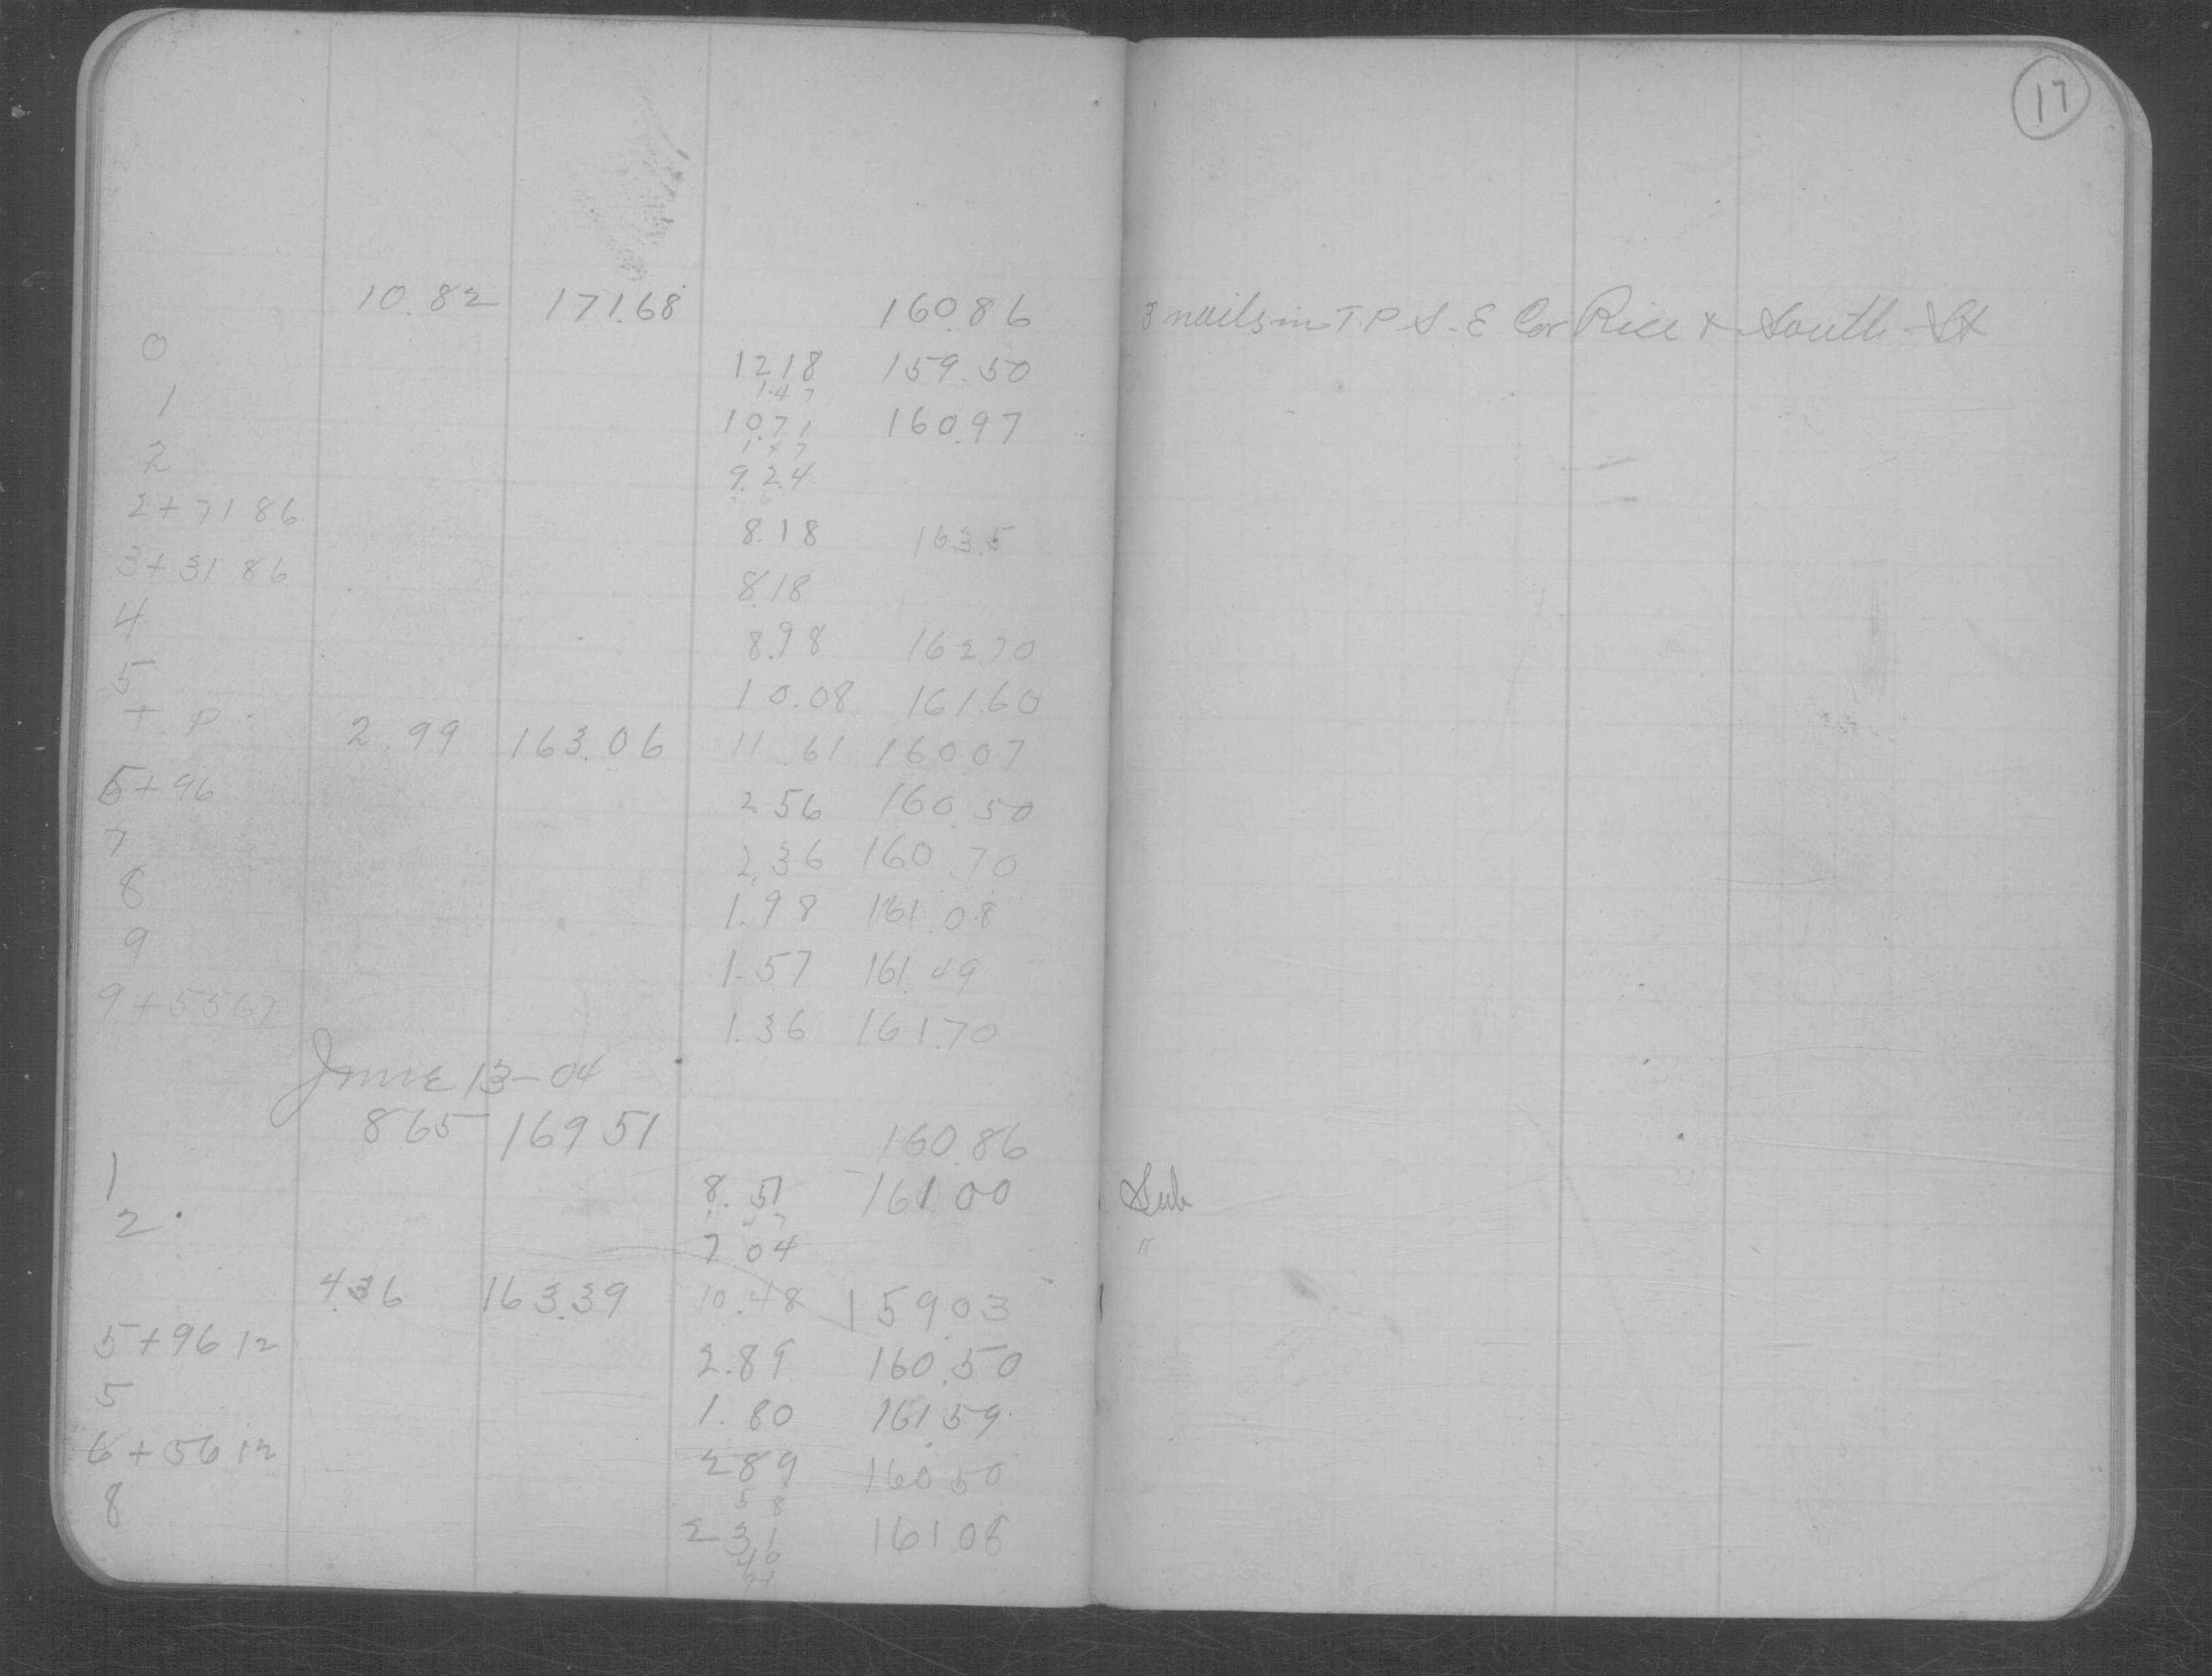 17
10.82 171.68 160.86 3 nails in T.P S.E Cor Rice & South St
0 12.18 159.50
1.47
1 10.71 160.97
1 47
2 9.24
2+71 86 8.18 163.5
3+31 86 8.18
4 8.98 162.70
5 10.08 161.60
T. P. 2.99 163.06 11.61 160 07
5+96 2 56 160.50
7 2.36 160.70
8 1.98 161 08
9 1.57 161.49
9+5567 1.36 161.70
June 13-04
8 65 169 51 160.86
1 8.51 161.00 Sub
1 47
2 7 04 "
4.36 163.39 10.48 159.03
5+96 12 2.89 160.50
5 1.80 161 59
6+56 12 2 89 160 50
5 8
8 2 31 161.08
40